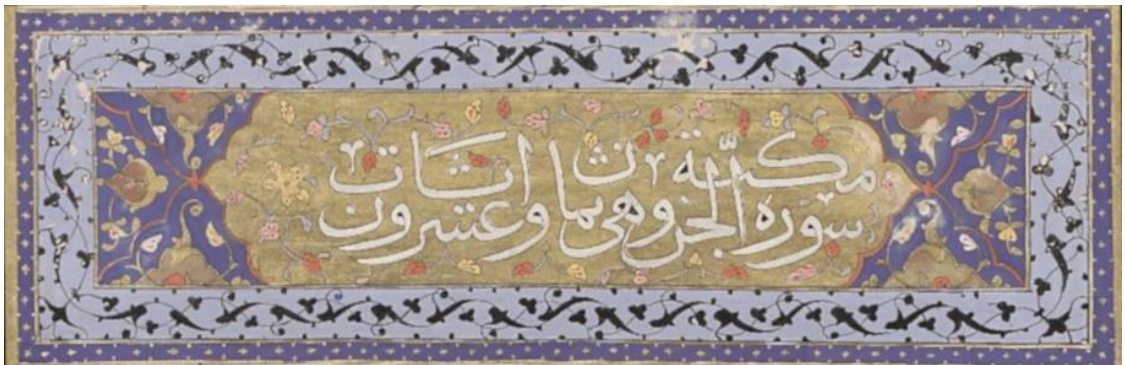 سوره الجن وهى ثمان وعشرون
ايات مكية